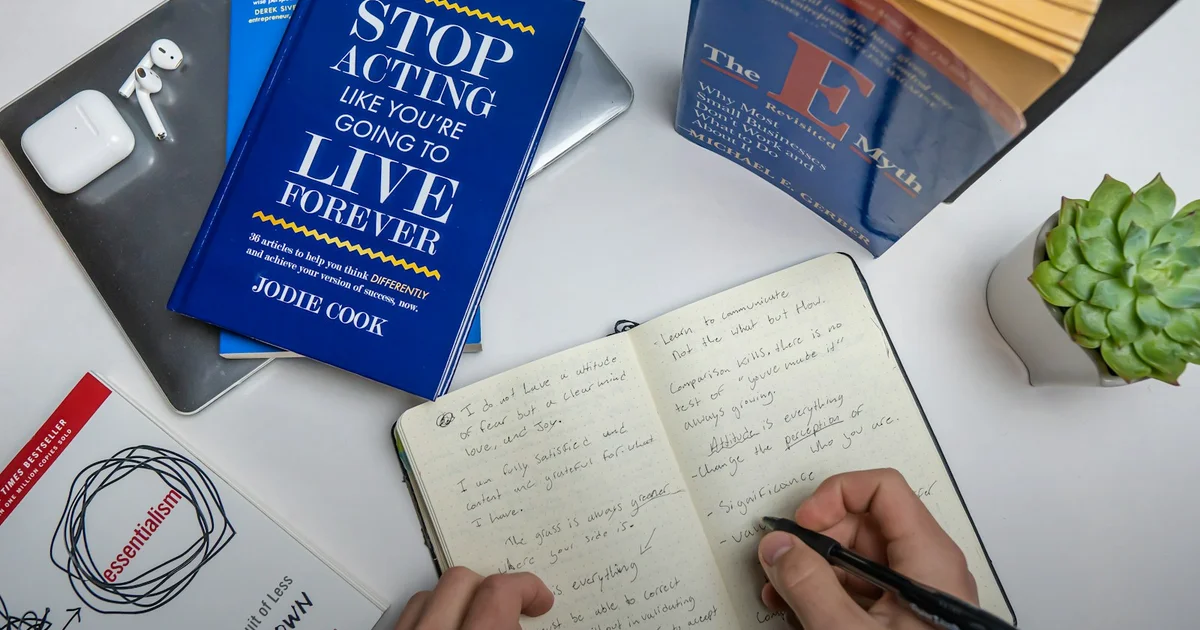 DEREK SIV
entrepreneur,
STOP
ACTING
LIKE YOU'RE
GOING TO
LIVE
FOREVER
36 articles to help you think DIFFERENTLY
and achieve your version of success, now.
JODIE COOK
The E Myth
Revisited
Why Most
Small Businesses
Don't Work and
What to Do
About It
MICHAEL E. GERBER
TIMES BESTSELLER
ONE MILLION COPIES SOLD
essentialism
uit of Less
OWN
I do not have a attitude
of fear but a clear mind
love, and Joy.
I am fully satisfied and
content and grateful for what
I have.
The grass is always greener
where your side is.
is everything
ust be able to correct
out invalidating
to accept
- Learn to communicate
Not the what but How.
Comparison kills, there is no
test of "you've made it"
always growing.
Attitude is everything
- Change the perception of
who you are.
- Significance
- val
fer